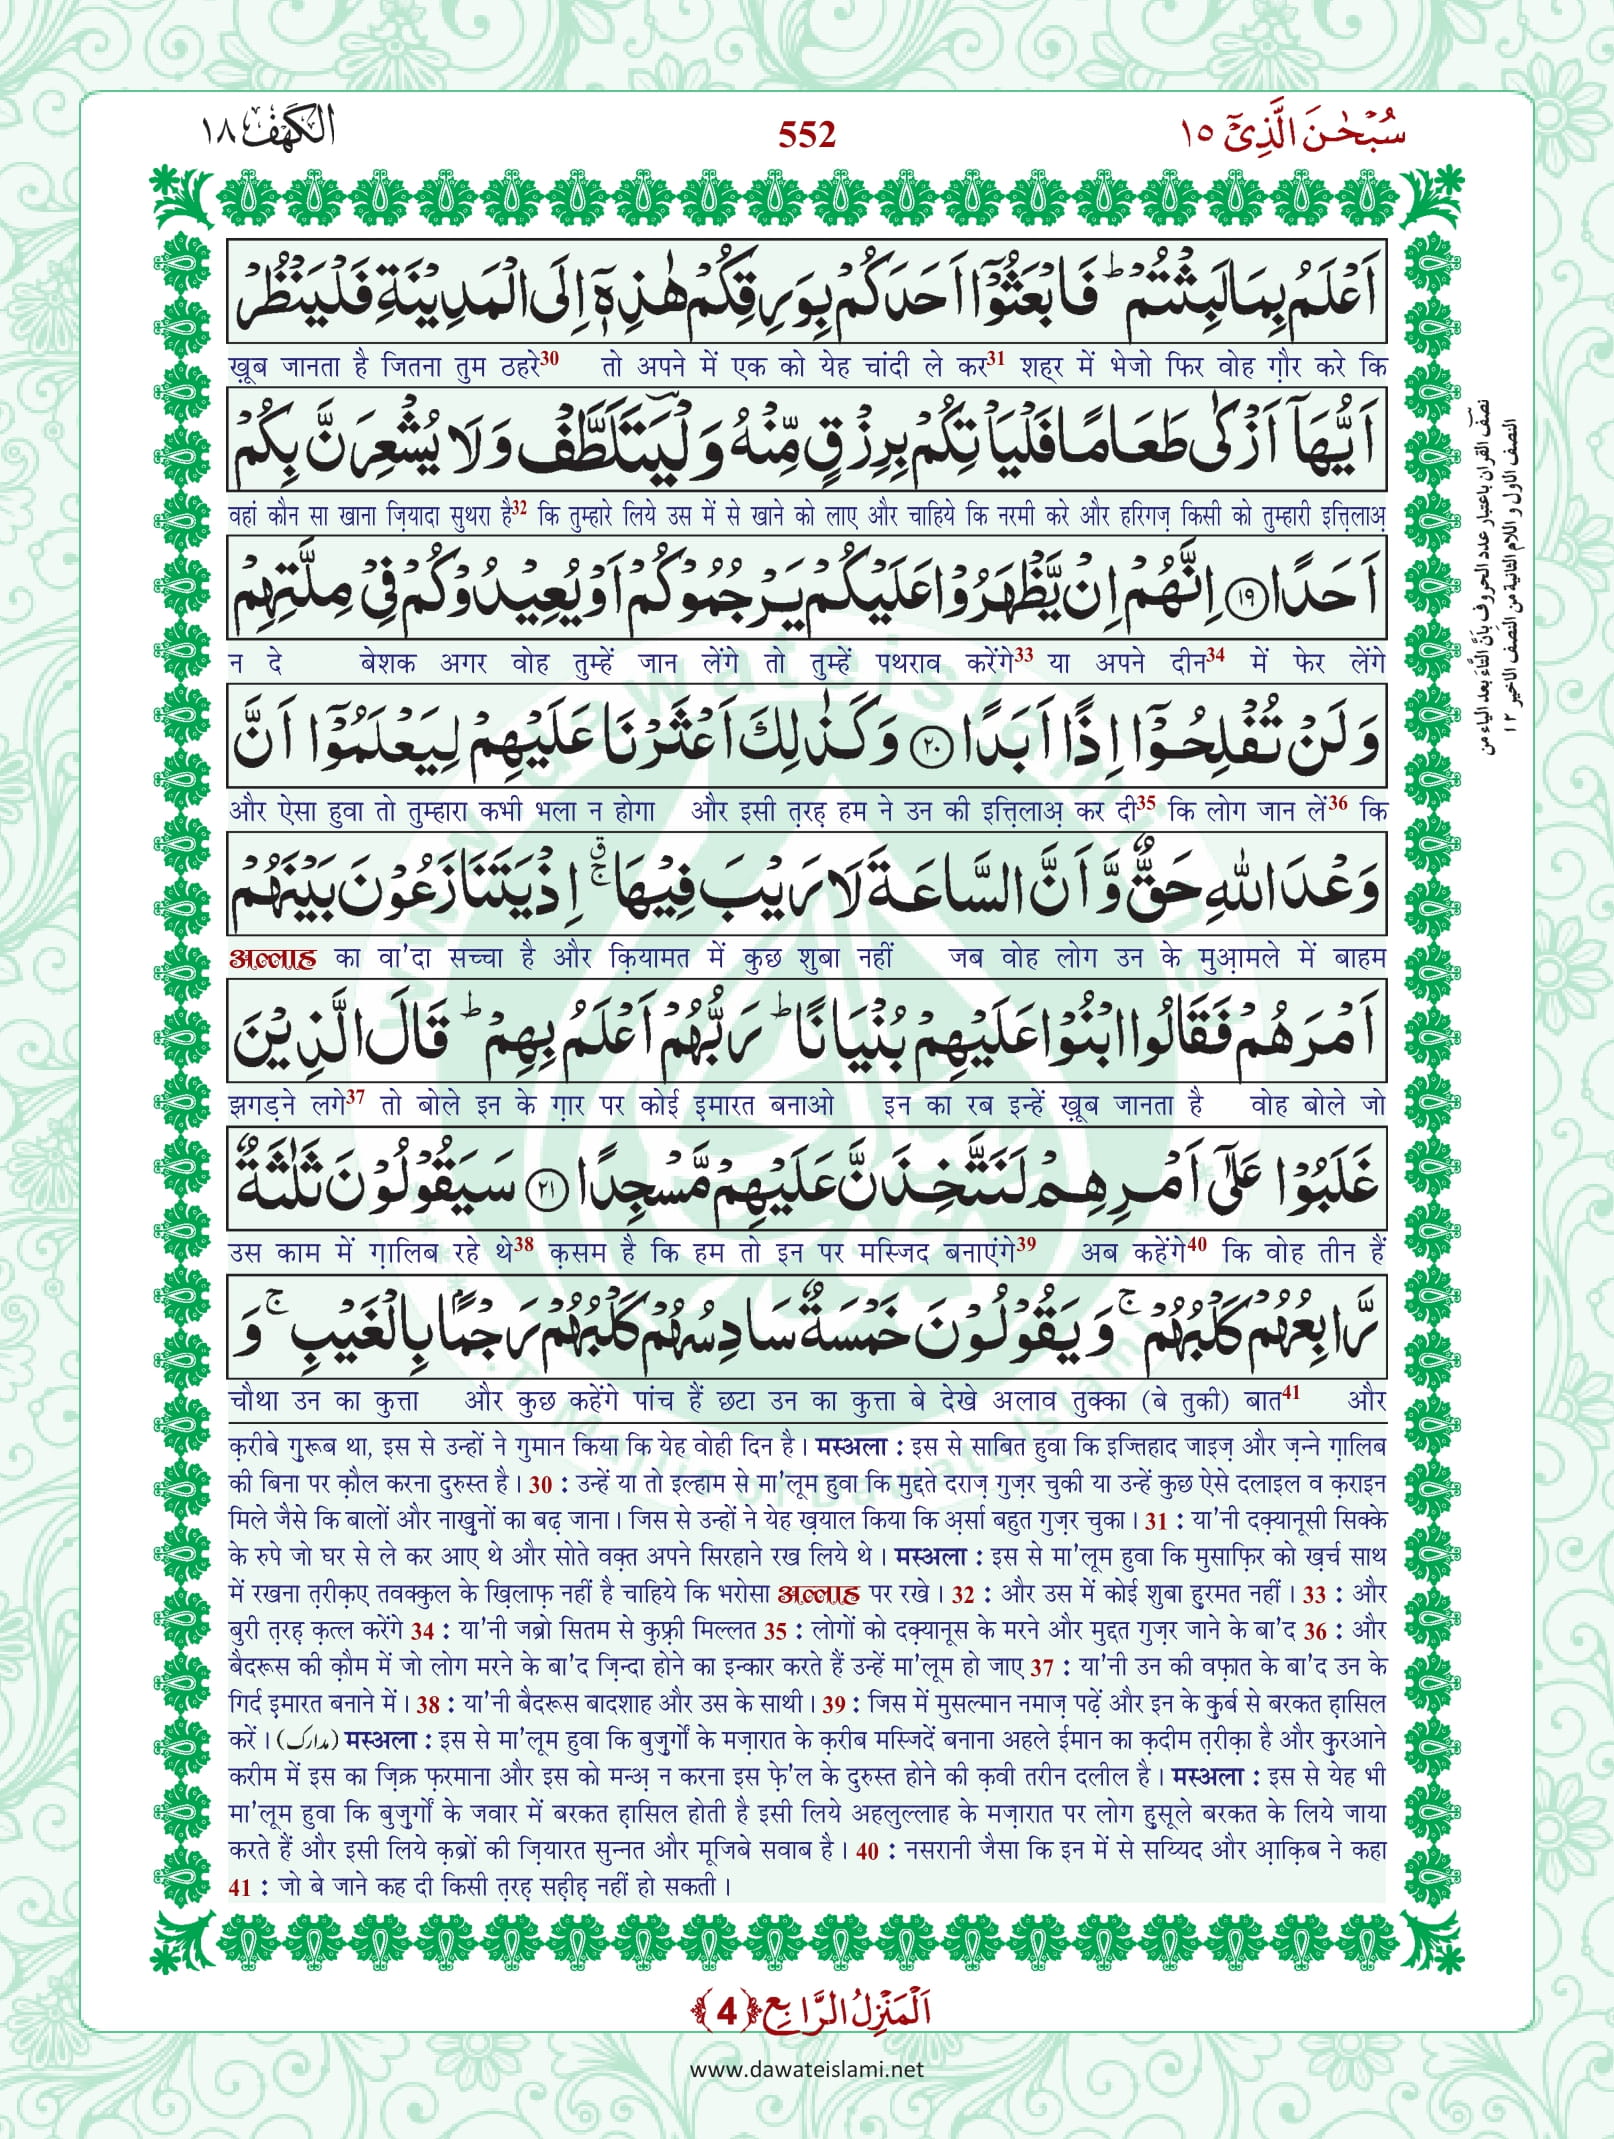 سُبْحٰنَ الَّذِیْۤ ١٥
552
الكَهْف ١٨
اَعْلَمُ بِمَا لَبِثْتُمْ ؕ فَابْعَثُوْۤا اَحَدَكُمْ بِوَرِقِكُمْ هٰذِهٖۤ اِلَى الْمَدِیْنَةِ فَلْیَنْظُرْ
ख़ूब जानता है जितना तुम ठहरे30 तो अपने में एक को येह चांदी ले कर31 शह्र में भेजो फिर वोह ग़ौर करे कि
اَیُّهَاۤ اَزْكٰى طَعَامًا فَلْیَاْتِكُمْ بِرِزْقٍ مِّنْهُ وَلْیَتَلَطَّفْ وَلَا یُشْعِرَنَّ بِكُمْ
वहां कौन सा खाना ज़ियादा सुथरा है32 कि तुम्हारे लिये उस में से खाने को लाए और चाहिये कि नरमी करे और हरगिज़ किसी को तुम्हारी इत्तिलाअ़
اَحَدًا ﴿١٩﴾ اِنَّهُمْ اِنْ یَّظْهَرُوْا عَلَیْكُمْ یَرْجُمُوْكُمْ اَوْ یُعِیْدُوْكُمْ فِیْ مِلَّتِهِمْ
न दे बेशक अगर वोह तुम्हें जान लेंगे तो तुम्हें पथराव करेंगे33 या अपने दीन34 में फेर लेंगे
وَلَنْ تُفْلِحُوْۤا اِذًا اَبَدًا ﴿٢٠﴾ وَكَذٰلِكَ اَعْثَرْنَا عَلَیْهِمْ لِیَعْلَمُوْۤا اَنَّ
और ऐसा हुवा तो तुम्हारा कभी भला न होगा और इसी त़रह़ हम ने उन की इत्तिलाअ़ कर दी35 कि लोग जान लें36 कि
وَعْدَ اللّٰهِ حَقٌّ وَّاَنَّ السَّاعَةَ لَا رَیْبَ فِیْهَا ۚۗ اِذْ یَتَنَازَعُوْنَ بَیْنَهُمْ
अल्लाह का वा'दा सच्चा है और क़ियामत में कुछ शुबा नहीं जब वोह लोग उन के मुआ़मले में बाहम
اَمْرَهُمْ فَقَالُوا ابْنُوْا عَلَیْهِمْ بُنْیَانًا ؕ رَبُّهُمْ اَعْلَمُ بِهِمْ ؕ قَالَ الَّذِیْنَ
झगड़ने लगे37 तो बोले इन के ग़ार पर कोई इमारत बनाओ इन का रब इन्हें ख़ूब जानता है वोह बोले जो
غَلَبُوْا عَلٰۤى اَمْرِهِمْ لَنَتَّخِذَنَّ عَلَیْهِمْ مَّسْجِدًا ﴿٢١﴾ سَیَقُوْلُوْنَ ثَلٰثَةٌ
उस काम में ग़ालिब रहे थे38 क़सम है कि हम तो इन पर मस्जिद बनाएंगे39 अब कहेंगे40 कि वोह तीन हैं
رَّابِعُهُمْ كَلْبُهُمْ ۚ وَیَقُوْلُوْنَ خَمْسَةٌ سَادِسُهُمْ كَلْبُهُمْ رَجْمًۢا بِالْغَیْبِ ۚ وَ
चौथा उन का कुत्ता और कुछ कहेंगे पांच हैं छटा उन का कुत्ता बे देखे अलाव तुक्का (बे तुकी) बात41 और
क़रीबे ग़ुरूब था, इस से उन्हों ने गुमान किया कि येह वोही दिन है। मस्अला : इस से साबित हुवा कि इज्तिहाद जाइज़ और ज़न्ने ग़ालिब
की बिना पर क़ौल करना दुरुस्त है। 30 : उन्हें या तो इल्हाम से मा'लूम हुवा कि मुद्दते दराज़ गुज़र चुकी या उन्हें कुछ ऐसे दलाइल व क़राइन
मिले जैसे कि बालों और नाखुनों का बढ़ जाना। जिस से उन्हों ने येह ख़याल किया कि अ़र्सा बहुत गुज़र चुका। 31 : या'नी दक़्यानूसी सिक्के
के रुपे जो घर से ले कर आए थे और सोते वक़्त अपने सिरहाने रख लिये थे। मस्अला : इस से मा'लूम हुवा कि मुसाफ़िर को ख़र्च साथ
में रखना त़रीक़ए तवक्कुल के ख़िलाफ़ नहीं है चाहिये कि भरोसा अल्लाह पर रखे। 32 : और उस में कोई शुबा हुरमत नहीं। 33 : और
बुरी त़रह़ क़त्ल करेंगे 34 : या'नी जब्रो सितम से कुफ़्री मिल्लत 35 : लोगों को दक़्यानूस के मरने और मुद्दत गुज़र जाने के बा'द 36 : और
बैदरूस की क़ौम में जो लोग मरने के बा'द ज़िन्दा होने का इन्कार करते हैं उन्हें मा'लूम हो जाए 37 : या'नी उन की वफ़ात के बा'द उन के
गिर्द इमारत बनाने में। 38 : या'नी बैदरूस बादशाह और उस के साथी। 39 : जिस में मुसल्मान नमाज़ पढ़ें और इन के क़ुर्ब से बरकत ह़ासिल
करें। (مدارک) मस्अला : इस से मा'लूम हुवा कि बुज़ुर्गों के मज़ारात के क़रीब मस्जिदें बनाना अहले ईमान का क़दीम त़रीक़ा है और क़ुरआने
करीम में इस का ज़िक्र फ़रमाना और इस को मन्अ़ न करना इस फ़े'ल के दुरुस्त होने की क़वी तरीन दलील है। मस्अला : इस से येह भी
मा'लूम हुवा कि बुज़ुर्गों के जवार में बरकत ह़ासिल होती है इसी लिये अहलुल्लाह के मज़ारात पर लोग हुसूले बरकत के लिये जाया
करते हैं और इसी लिये क़ब्रों की ज़ियारत सुन्नत और मूजिबे सवाब है। 40 : नसरानी जैसा कि इन में से सय्यिद और आ़क़िब ने कहा
41 : जो बे जाने कह दी किसी त़रह़ सह़ीह़ नहीं हो सकती।
نصف القران باعتبار عدد الحروف بان التاء بعد الياء من
النصف الاول و اللام الثانية من النصف الاخير ١٢
اَلْمَنْزِلُ الرَّابِع ﴿4﴾
www.dawateislami.net